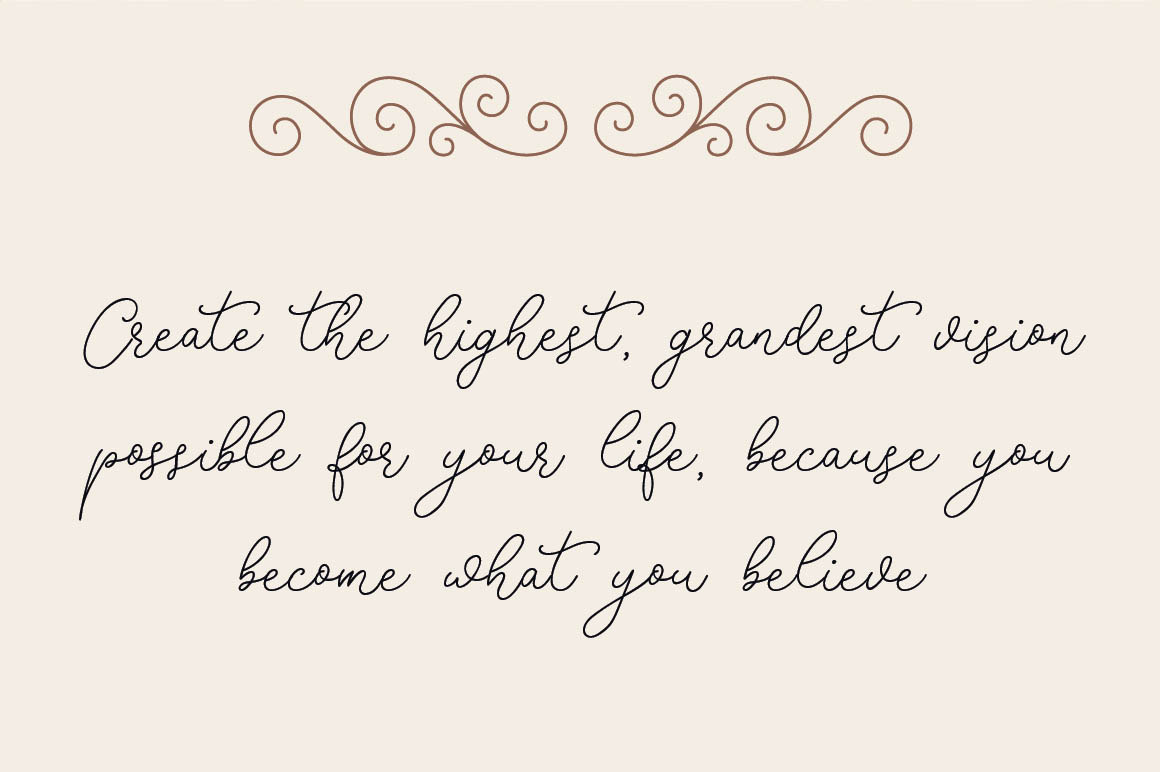 Create the highest, grandest vision
possible for your life, because you
become what you believe